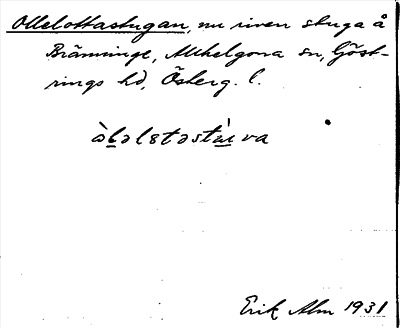 Ollelottastugan, nu riven stuga å
Bränninge, Mihelgona sn, Göst-
rings hd, Österg. l.
Erik Alm 1931